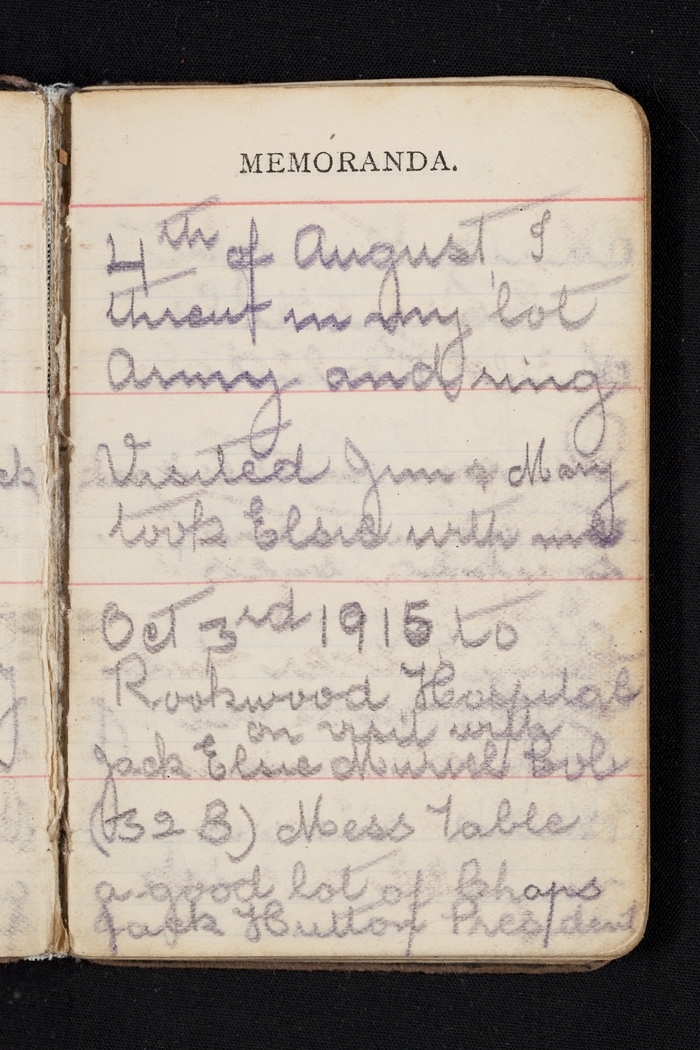 MEMORANDA.
4th of August I
threw in my lot
Army and ring
Visited Jim & Mary
took Elsie with me
Oct 3rd 1915 to
Rookwood Hospital
on visit with
Jack Elsie Muriel Bob
(32 B) Mess Table
a good lot of Chaps
Jack Hutton President